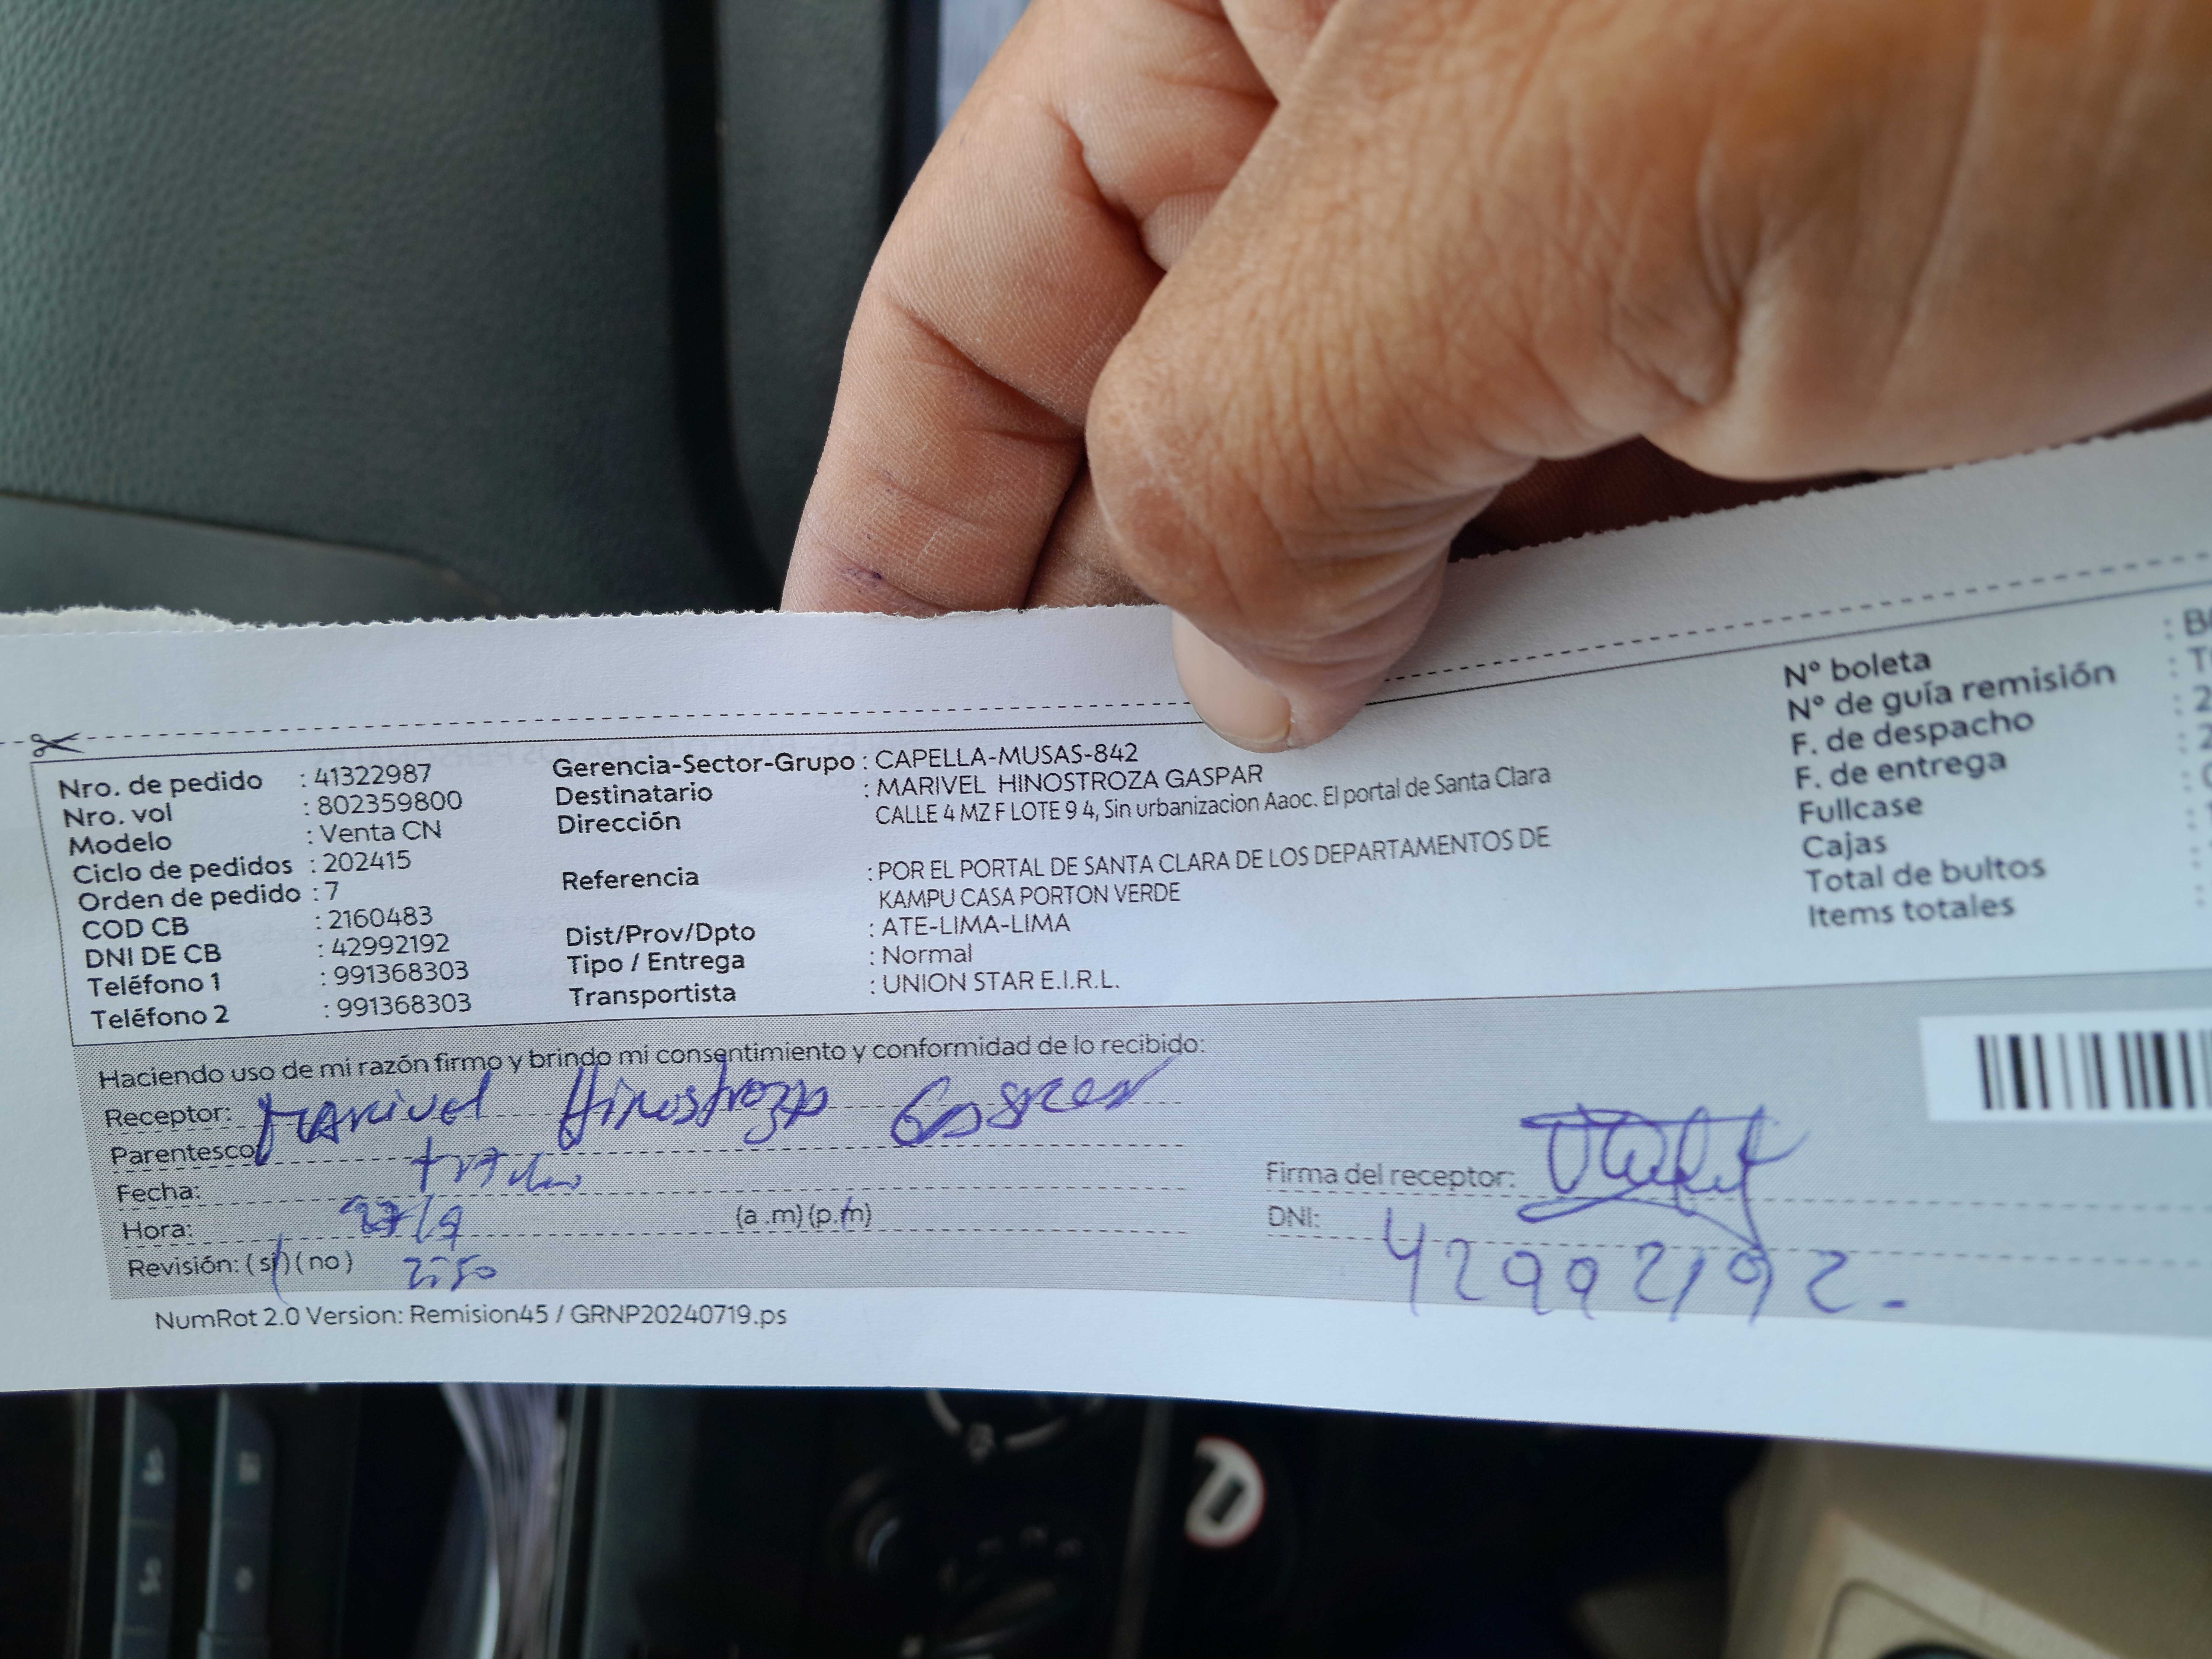 Nro. de pedido : 41322987
Nro. vol : 802359800
Modelo : Venta CN
Ciclo de pedidos : 202415
Orden de pedido : 7
COD CB : 2160483
DNI DE CB : 42992192
Teléfono 1 : 991368303
Teléfono 2 : 991368303
Gerencia-Sector-Grupo : CAPELLA-MUSAS-842
Destinatario : MARIVEL HINOSTROZA GASPAR
Dirección CALLE 4 MZ F LOTE 9 4, Sin urbanizacion Aaoc. El portal de Santa Clara
Referencia : POR EL PORTAL DE SANTA CLARA DE LOS DEPARTAMENTOS DE
KAMPU CASA PORTON VERDE
Dist/Prov/Dpto : ATE-LIMA-LIMA
Tipo / Entrega : Normal
Transportista : UNION STAR E.I.R.L.
N° boleta :
N° de guía remisión :
F. de despacho : 2
F. de entrega : 2
Fullcase :
Cajas :
Total de bultos :
Items totales :
Haciendo uso de mi razón firmo y brindo mi consentimiento y conformidad de lo recibido:
Receptor: Marivel Hinostroza Gaspar
Parentesco:
Fecha:
Hora: (a .m) (p.m)
Revisión: (si) (no)
Firma del receptor:
DNI: 42992192.
NumRot 2.0 Version: Remision45 / GRNP20240719.ps